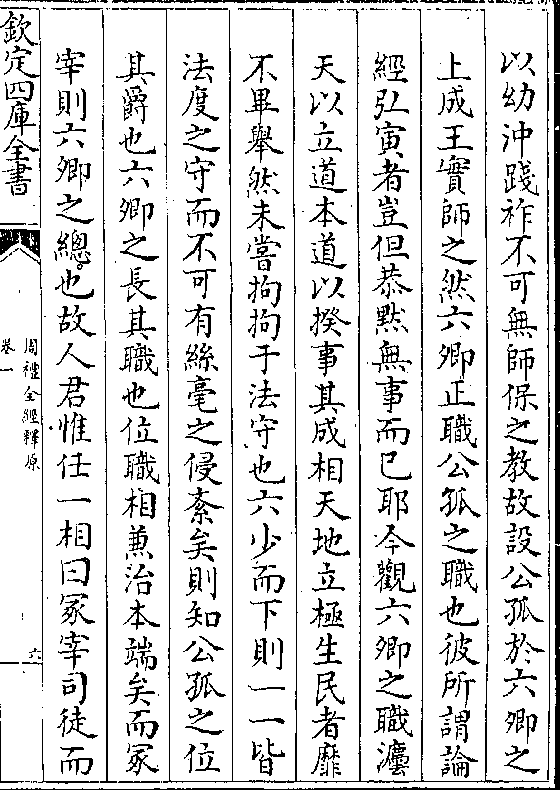 以幼沖踐祚不可無師保之教故設公孤於六卿之
上成王實師之然六卿正職公孤之職也彼所謂論
經弘寅者豈但恭黙無事而已耶今觀六卿之職灋
天以立道本道以揆事其成相天地立極生民者靡
不畢舉然未嘗拘拘于法守也六少而下則一一皆
法度之守而不可有絲毫之侵紊矣則知公孤之位
其爵也六卿之長其職也位職相兼治本端矣而冢
宰則六卿之總也故人君惟任一相曰冢宰司徒而
欽定四庫全書
周禮全經釋原
卷一
六